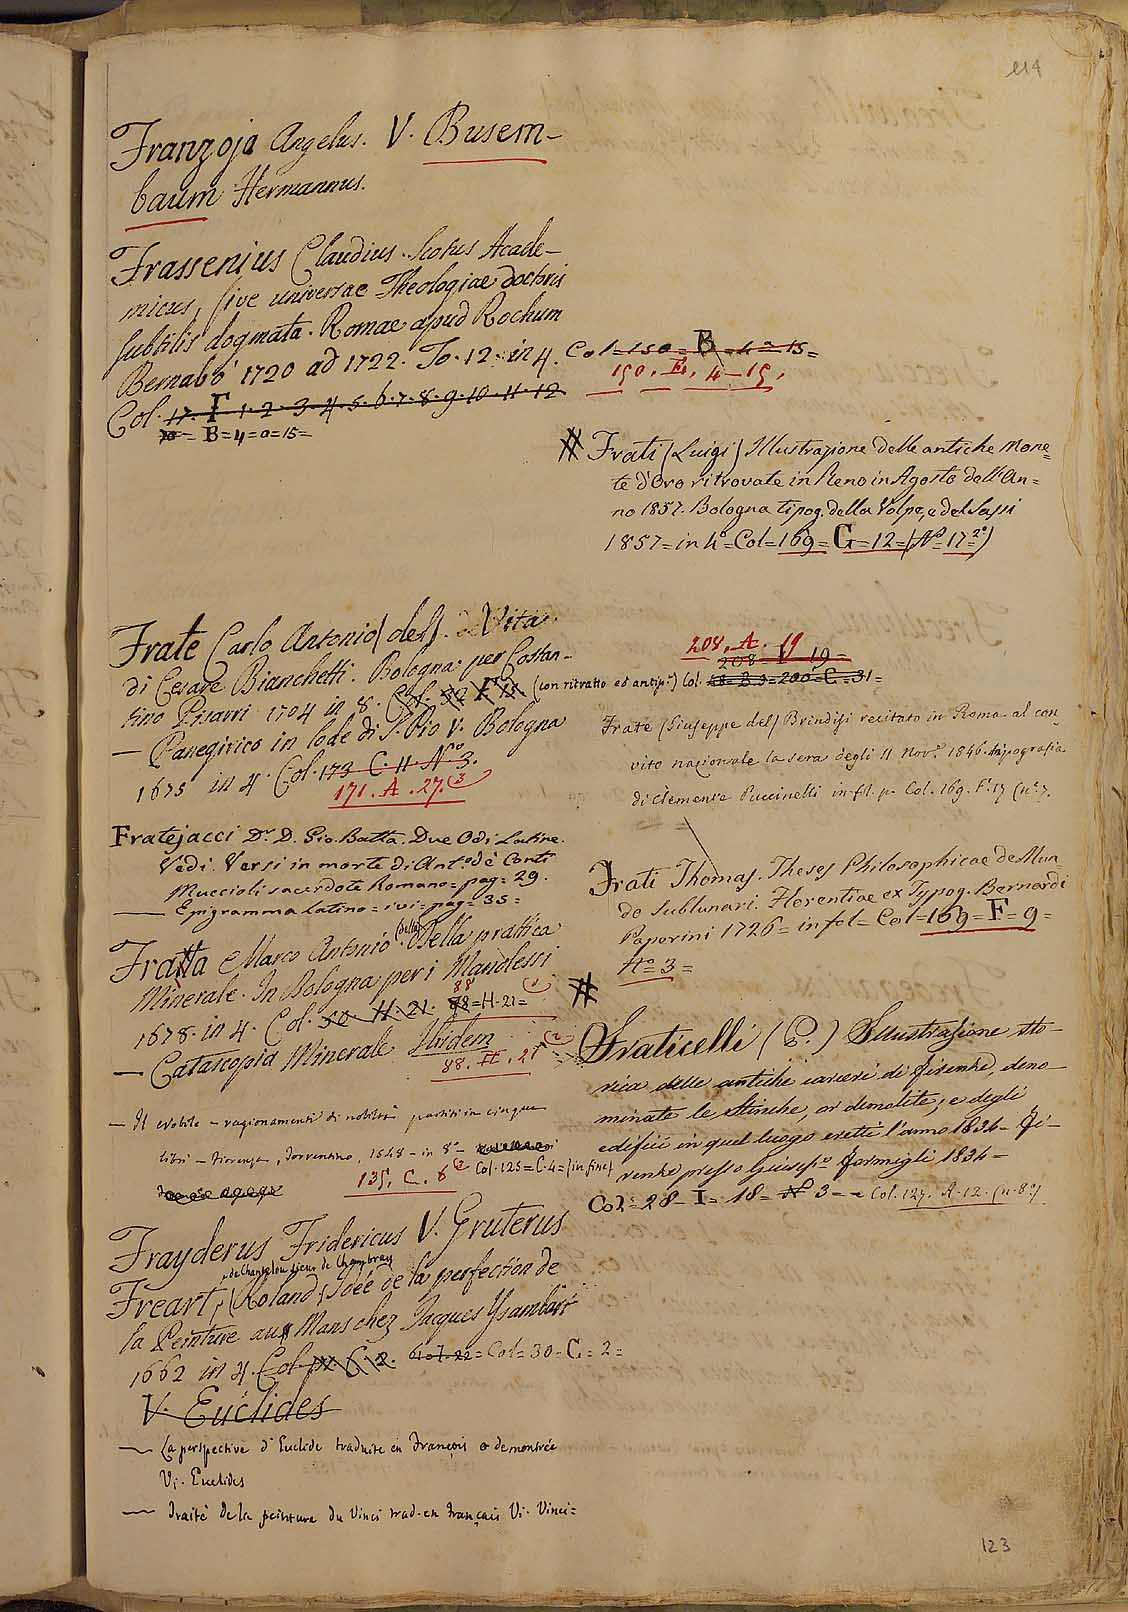 114
Franzoja Angelus. V. Busem-
baum Hermannus.
Frassenius Claudius. Scotus Acade-
micus, sive universae Theologiae doctoris
subtilis dogmata. Romae apud Rochum
Bernabò 1720 ad 1722. To. 12. in 4. Col=150= B =4=15=
150. E. 4-15.
Col. 17. F 1. 2. 3. 4. 5. 6. 7. 8. 9. 10. 11. 12
= B=4=0=15=
# Frati (Luigi) Illustrazione delle antiche Mone=
te d'Oro ritrovate in Reno in Agosto dell'An=
no 1857. Bologna tipog. della Volpe, e del Sassi
1857=in 4°=Col=169=G=12=(N°=17=2°)
Frate Carlo Antonio (del). Vita
di Cesare Bianchetti. Bologna: per Costan-
tino Pisarri 1704 in 8. Col. (con ritratto ed antip.) Col. 48=B.3=200=C=31=
208. A. 19
208 19=
— Panegirico in lode di S. Pio V. Bologna
1675 in 4. Col. 173 C. 11. N.° 3.
171. A. 27. (3
Frate (Giuseppe del) Brindisi recitato in Roma al con
vito nazionale la sera degli 11 Nov. 1846. tipografia
di Clemente Puccinelli in-fl. p. Col. 169. F. 17 (n° 7.
Fratejacci Dr. D. Gio. Batta. Due Odi Latine.
Vedi. Versi in morte di Ant.° de Conti
Muccioli sacerdote Romano=pag=29.
— Epigramma Latino=ivi=pag=35=
Frati Thomas. Theses Philosophicae de Mun
do Sublunari. Florentiae ex Typog. Bernardi
Paperini 1726=in fol=Col=169=F=9=
N°=3=
Fratta Marco Antonio (della). Della prattica
Minerale. In Bologna per i Manolessi
1678. in 4. Col. 50. H. 21. 88=H.21= (1
88
— Catascopia Minerale Ibidem
88. H. 21 (2
#
Fraticelli (P.) Illustrazione sto-
rica delle antiche carceri di firenze, deno-
minate le Stinche, or demolite, e degli
edificii in quel luogo eretti l'anno 1834- Fi-
renze presso Giusep.° formigli 1834-
Col=28=I=18=N° 3= = Col. 127. A. 12. (n. 8°)
— Il ragionamenti di nobiltà partiti in cinque
libri - Fiorenza, Torrentino, 1548 - in 8°-
Col. 125=C.4=(in fine)
135. C. 6 (2
Frayderus Fridericus V. Gruterus
de Chantelou Sieur de Chambray
Freart, (Roland) Idée de la perfection de
la Peinture au Mans chez Jacques Ysambart
1662 in 4. Col. C. 2. Col. 22=Col=30=C=2=
V. Euclides
— La perspective d'Euclide traduite en François e demontrée
Vi. Euclides
— Traité de la peinture du Vinci trad. en Français Vi. Vinci=
123